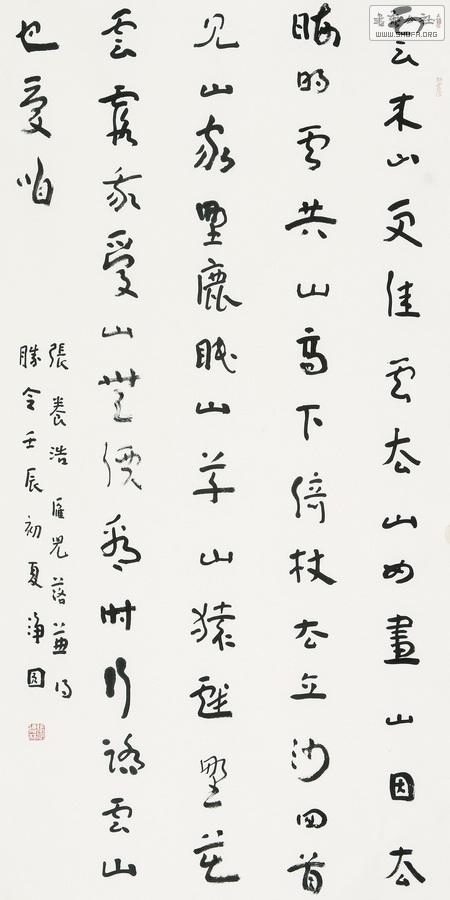 雲來山更佳云去山如畫山因云
晦明雲共山高下倚杖云立沙回首
見山家野鹿眠山草山猿戲野花
雲霞我愛山無價看時行踏雲山
也愛咱
張養浩雁兒落兼得
勝令壬辰初夏淨因
书法公社
WWW.SHUFA.ORG